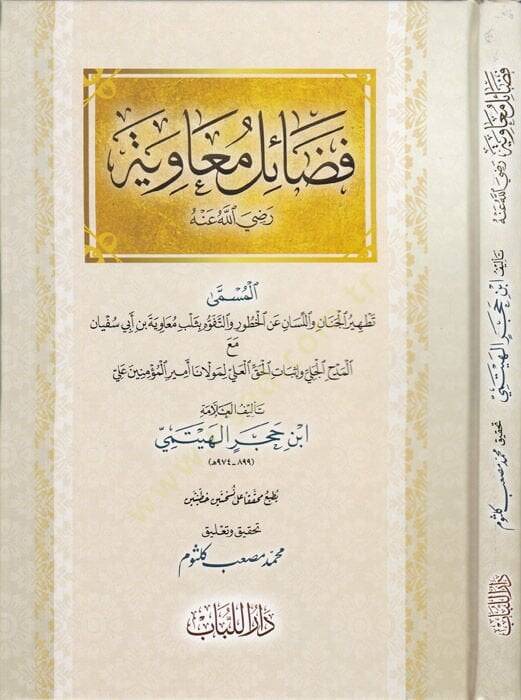 فَضَائِل مُعَاوِيَة
رَضِيَ اللَّهُ عَنْهُ
المُسَمَّى
تَطهِيرُ الجَنانِ وَاللِّسَانِ عَنِ الخُطُورِ وَالتَّفَوُّهِ بِثَلبِ مُعَاوِيَةَ بنِ أَبِي سُفْيَان
مَعَ
المَدْحِ الجَلِيِّ وَإِثبَاتِ الحَقِّ العَلِيِّ لِمَولَانَا أَمِيرِ المُؤْمِنِينَ عَلِيّ
تَأليف العَلَّامَة
ابْنِ حَجَرٍ الهَيتَمِيّ
(٨٩٩ - ٩٧٤هـ)
يُطبَعُ محققاً على نُسختين خطيّتين
تحقيق وتعليق
محمد مصعب كلثوم
دَارُ اللُّبَاب
فَضَائِل مُعَاوِيَة
رَضِيَ اللَّهُ عَنْهُ
تَأليف
ابْنِ حَجَرٍ الهَيتَمِيّ
تحقيق محمد مصعب كلثوم
دَارُ اللُّبَاب